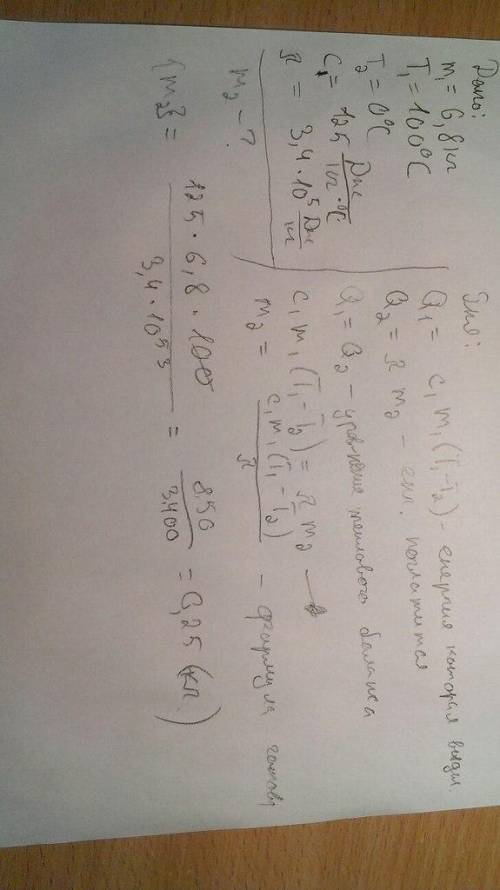 Дано:
m₁ = 6,8 кг
T₁ = 100°C
T₂ = 0°C
C₁ = 125 Дж/кг·°C
λ = 3,4·10⁵ Дж/кг
m₂ - ?
Q₁ = c₁m₁(T₁-T₂) - енергия которая выдел.
Q₂ = λ m₂ - енг. поглатится
Q₁ = Q₂ - уравнение теплового баланса
c₁m₁(T₁-T₂) = λ m₂ →
m₂ = c₁m₁(T₁-T₂)/λ - формула
{m₂} = 125·6,8·100/3,4·10⁵ ³ = 850/3400 = 0,25 (кг)